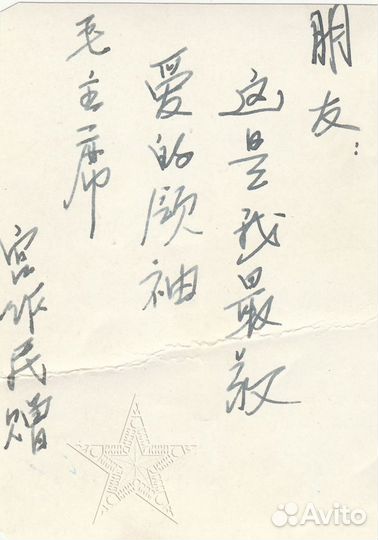 朋友:
这是我最敬
爱的领袖
毛主席
宫作民赠
Avito